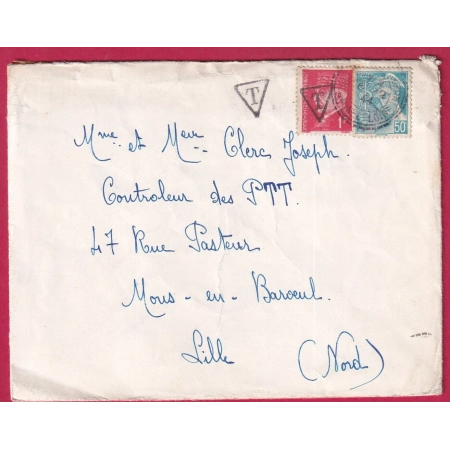 T T 1 50
Mme et Meur Clerc Joseph.
Controleur des PTT.
47 Rue Pasteur
Mons-en-Baroeul.
Lille (Nord)